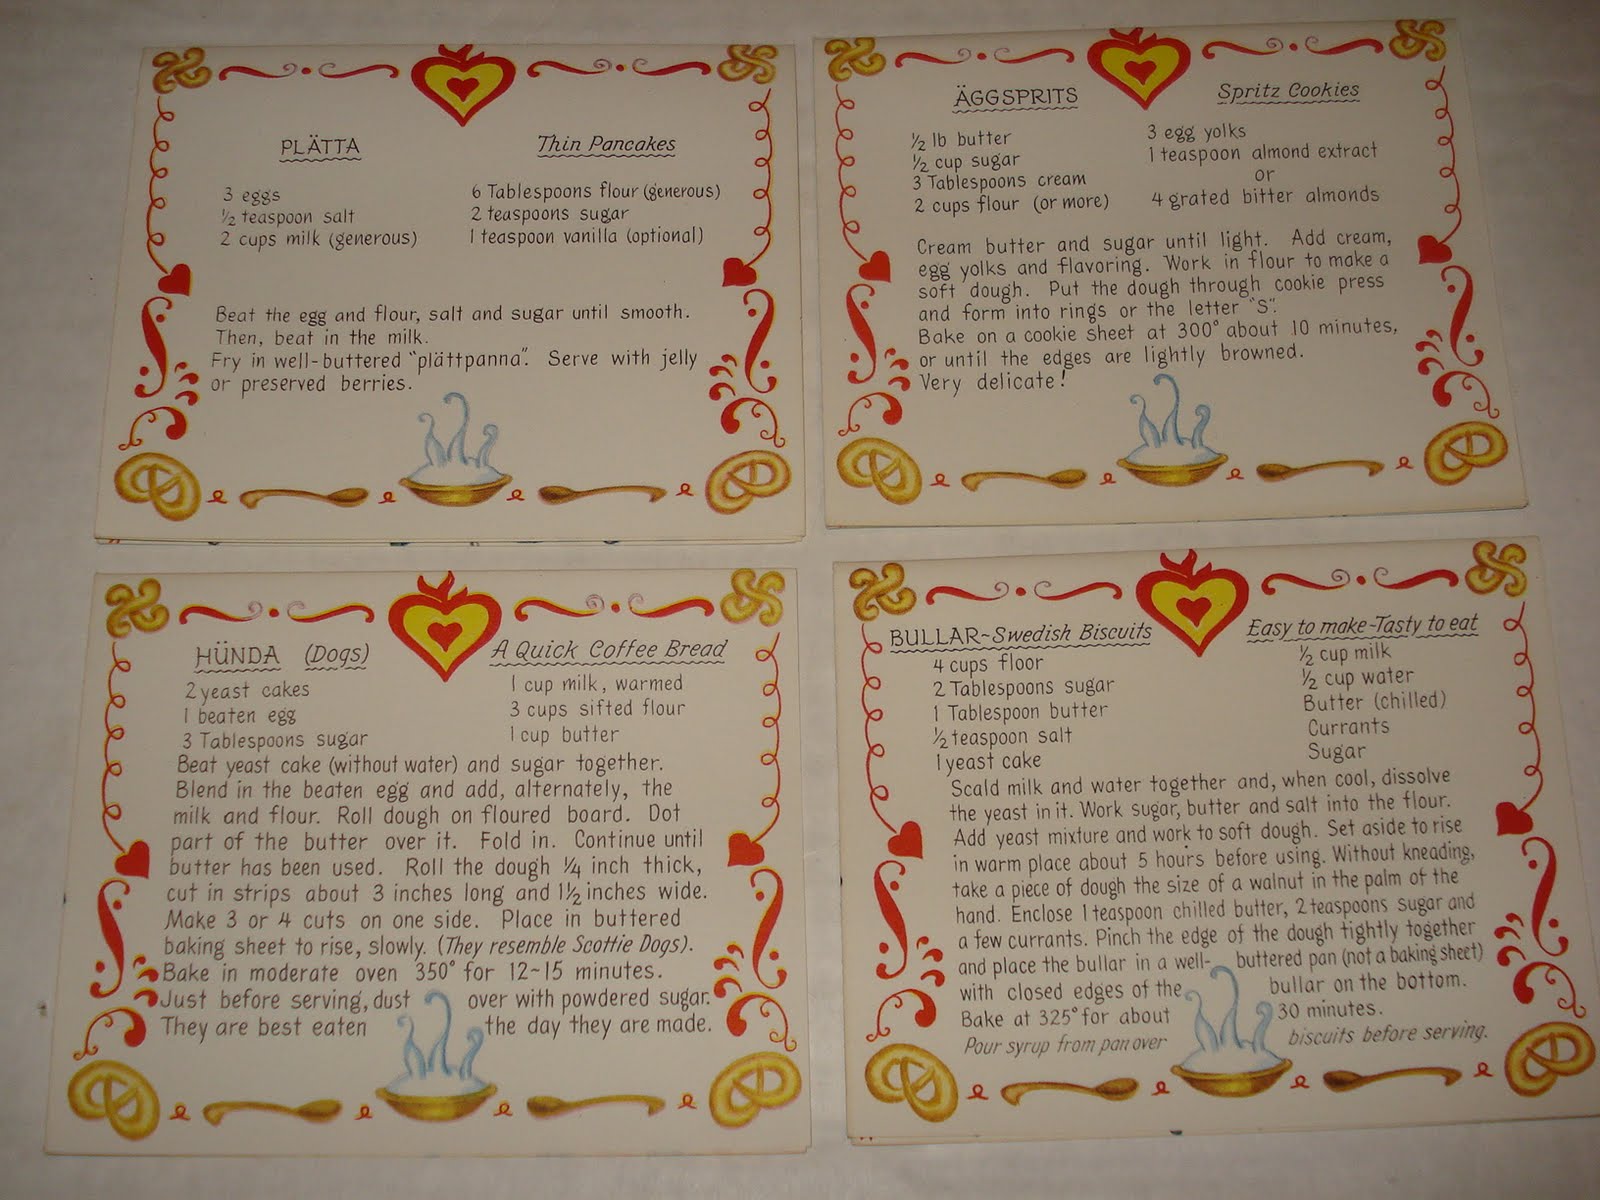 PLÄTTA Thin Pancakes
3 eggs 6 Tablespoons flour (generous)
½ teaspoon salt 2 teaspoons sugar
2 cups milk (generous) 1 teaspoon vanilla (optional)
Beat the egg and flour, salt and sugar until smooth.
Then, beat in the milk.
Fry in well-buttered "plättpanna". Serve with jelly
or preserved berries.
ÄGGSPRITS Spritz Cookies
½ lb butter 3 egg yolks
½ cup sugar 1 teaspoon almond extract
3 Tablespoons cream or
2 cups flour (or more) 4 grated bitter almonds
Cream butter and sugar until light. Add cream,
egg yolks and flavoring. Work in flour to make a
soft dough. Put the dough through cookie press
and form into rings or the letter "S".
Bake on a cookie sheet at 300° about 10 minutes,
or until the edges are lightly browned.
Very delicate!
HÜNDA (Dogs) A Quick Coffee Bread
2 yeast cakes 1 cup milk, warmed
1 beaten egg 3 cups sifted flour
3 Tablespoons sugar 1 cup butter
Beat yeast cake (without water) and sugar together.
Blend in the beaten egg and add, alternately, the
milk and flour. Roll dough on floured board. Dot
part of the butter over it. Fold in. Continue until
butter has been used. Roll the dough ¼ inch thick,
cut in strips about 3 inches long and 1½ inches wide.
Make 3 or 4 cuts on one side. Place in buttered
baking sheet to rise, slowly. (They resemble Scottie Dogs).
Bake in moderate oven 350° for 12~15 minutes.
Just before serving, dust over with powdered sugar.
They are best eaten the day they are made.
BULLAR~Swedish Biscuits Easy to make-Tasty to eat
4 cups floor ½ cup milk
2 Tablespoons sugar ½ cup water
1 Tablespoon butter Butter (chilled)
½ teaspoon salt Currants
1 yeast cake Sugar
Scald milk and water together and, when cool, dissolve
the yeast in it. Work sugar, butter and salt into the flour.
Add yeast mixture and work to soft dough. Set aside to rise
in warm place about 5 hours before using. Without kneading,
take a piece of dough the size of a walnut in the palm of the
hand. Enclose 1 teaspoon chilled butter, 2 teaspoons sugar and
a few currants. Pinch the edge of the dough tightly together
and place the bullar in a well-buttered pan (not a baking sheet)
with closed edges of the bullar on the bottom.
Bake at 325° for about 30 minutes.
Pour syrup from pan over biscuits before serving.